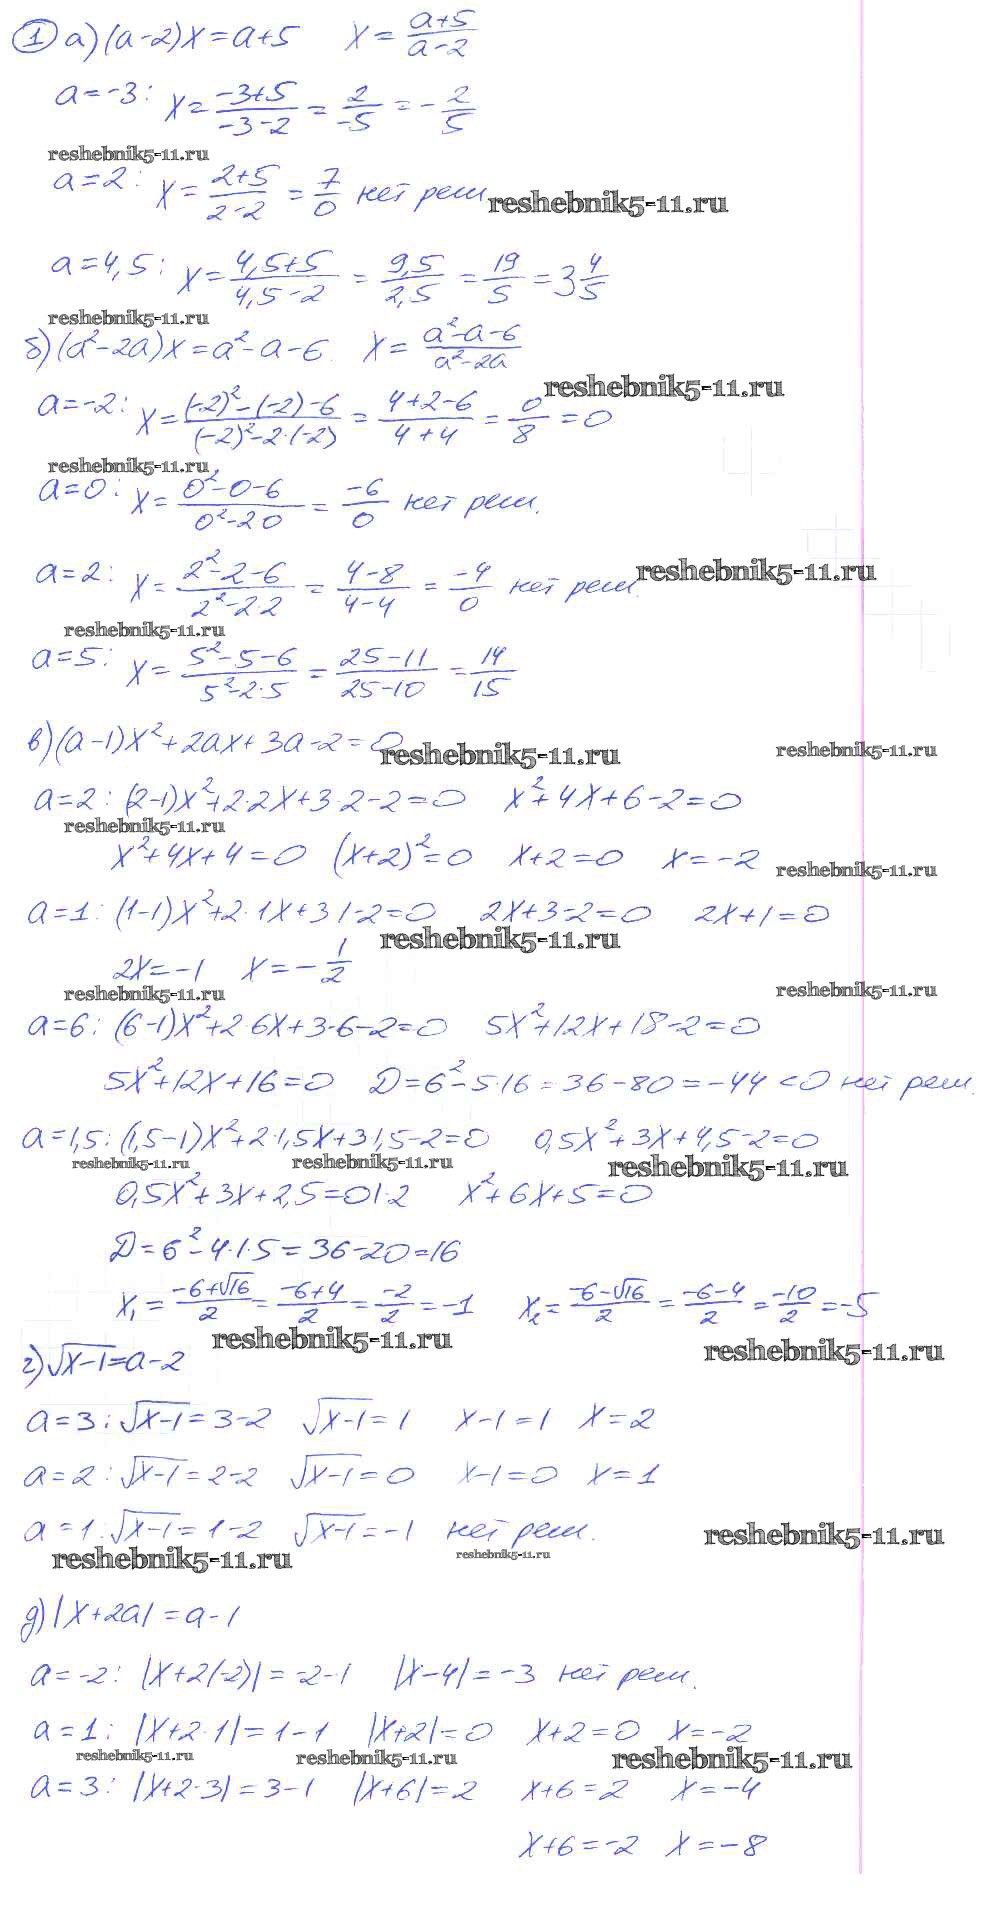 1 а) (a-2)x=a+5 x=\frac{a+5}{a-2}
a=-3: x=\frac{-3+5}{-3-2}=\frac{2}{-5}=-\frac{2}{5}
reshebnik5-11.ru
a=2: x=\frac{2+5}{2-2}=\frac{7}{0} нет реш. reshebnik5-11.ru
a=4,5: x=\frac{4,5+5}{4,5-2}=\frac{9,5}{2,5}=\frac{19}{5}=3\frac{4}{5}
reshebnik5-11.ru
б) (a²-2a)x=a²-a-6. x=\frac{a²-a-6}{a²-2a}
reshebnik5-11.ru
a=-2: x=\frac{(-2)²-(-2)-6}{(-2)²-2·(-2)}=\frac{4+2-6}{4+4}=\frac{0}{8}=0
reshebnik5-11.ru
a=0: x=\frac{0²-0-6}{0²-2 0}=\frac{-6}{0} нет реш.
a=2: x=\frac{2²-2-6}{2²-2·2}=\frac{4-8}{4-4}=\frac{-4}{0} нет реш. reshebnik5-11.ru
reshebnik5-11.ru
a=5: x=\frac{5²-5-6}{5²-2·5}=\frac{25-11}{25-10}=\frac{14}{15}
в) (a-1)x²+2ax+3a-2=0 reshebnik5-11.ru reshebnik5-11.ru
a=2: (2-1)x²+2·2x+3·2-2=0 x²+4x+6-2=0
reshebnik5-11.ru
x²+4x+4=0 (x+2)²=0 x+2=0 x=-2 reshebnik5-11.ru
a=1: (1-1)x²+2·1x+3 1-2=0 2x+3-2=0 2x+1=0
reshebnik5-11.ru
2x=-1 x=-\frac{1}{2}
reshebnik5-11.ru reshebnik5-11.ru
a=6: (6-1)x²+2·6x+3·6-2=0 5x²+12x+18-2=0
5x²+12x+16=0 D=6²-5·16=36-80=-44<0 нет реш.
a=1,5: (1,5-1)x²+2·1,5x+3 1,5-2=0 0,5x²+3x+4,5-2=0
reshebnik5-11.ru reshebnik5-11.ru reshebnik5-11.ru
0,5x²+3x+2,5=0|·2 x²+6x+5=0
D=6²-4·1·5=36-20=16
x₁=\frac{-6+√16}{2}=\frac{-6+4}{2}=\frac{-2}{2}=-1 x₂=\frac{-6-√16}{2}=\frac{-6-4}{2}=\frac{-10}{2}=-5
reshebnik5-11.ru reshebnik5-11.ru
г) √(x-1)=a-2
a=3: √(x-1)=3-2 √(x-1)=1 x-1=1 x=2
a=2: √(x-1)=2-2 √(x-1)=0 x-1=0 x=1
a=1: √(x-1)=1-2 √(x-1)=-1 нет реш. reshebnik5-11.ru
reshebnik5-11.ru reshebnik5-11.ru
д) |x+2a|=a-1
a=-2: |x+2(-2)|=-2-1 |x-4|=-3 нет реш.
a=1: |x+2·1|=1-1 |x+2|=0 x+2=0 x=-2
reshebnik5-11.ru reshebnik5-11.ru reshebnik5-11.ru
a=3: |x+2·3|=3-1 |x+6|=2 x+6=2 x=-4
x+6=-2 x=-8